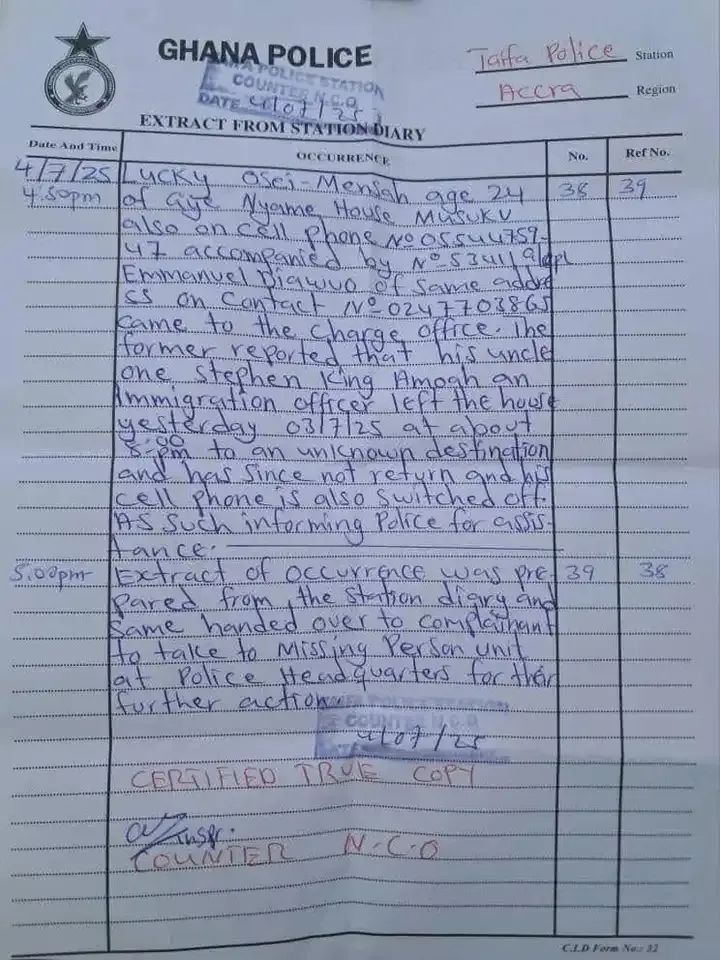 GHANA POLICE
Taifa Police Station
Accra Region
POLICE STATION
COUNTER N.C.O
DATE 4/07/25
EXTRACT FROM STATION DIARY
Date And Time OCCURRENCE No. Ref No.
4/7/25 Lucky Osei-Mensah age 24 38 39
4:50pm of Gye Nyame House Musuku
also on cell phone No 05544759-
47 accompanied by No 53411
Emmanuel of same addre
ss on contact No 0247703865
came to the charge office. The
former reported that his uncle
one, Stephen King Amoah an
Immigration officer left the house
yesterday 03/7/25 at about
8:00pm to an unknown destination
and has since not return and his
cell phone is also switched off.
As such informing Police for assis-
tance.
5:00pm Extract of occurrence was pre- 39 38
pared from the station diary and
same handed over to complainant
to take to Missing Person unit
at Police Headquarters for their
further action
POLICE STATION
COUNTER N.C.O
4/07/25
CERTIFIED TRUE COPY
Inspr.
COUNTER N.C.O
C.I.D Form No.: 32